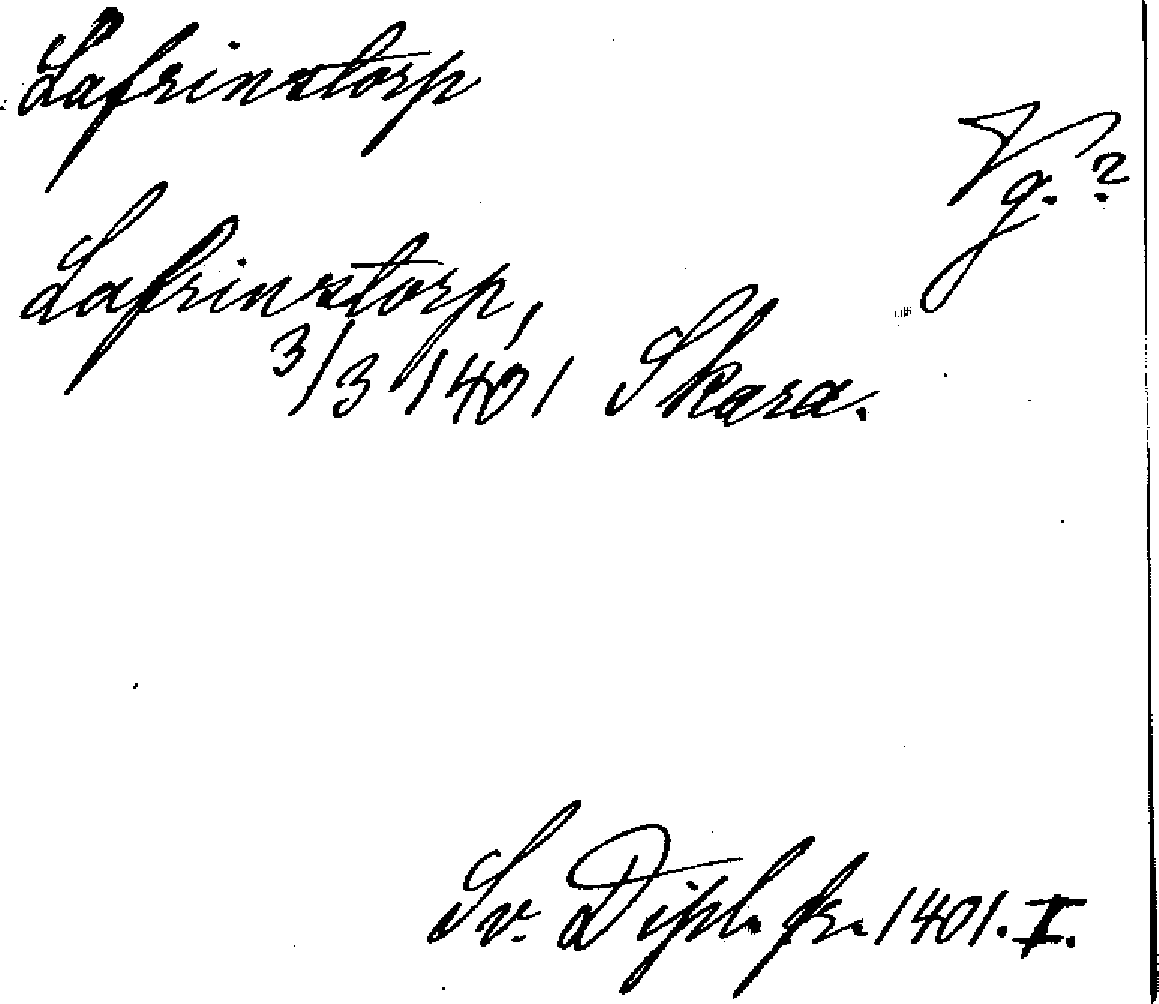 Lafrinstorp
Vg.?
Lafrinstorp,
3/3 1401 Skara.
Sv. Dipl. fr. 1401. I.